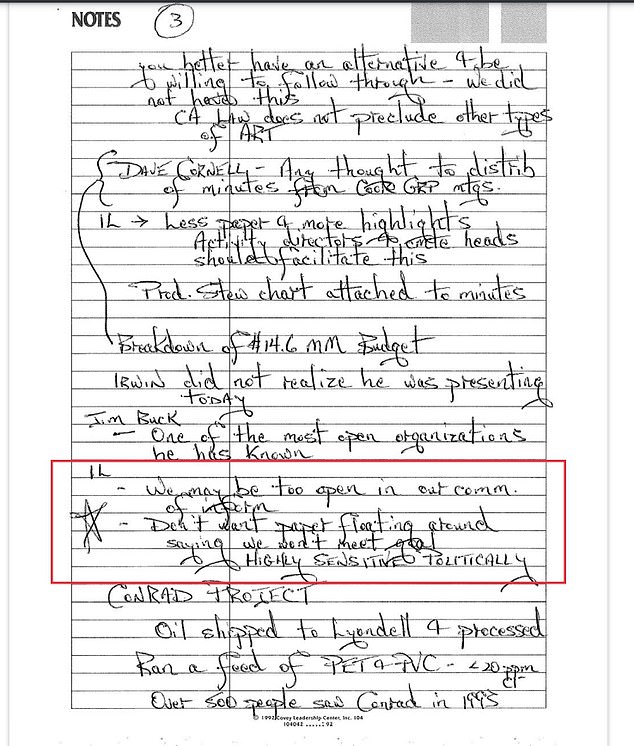 NOTES 3
you better have an alternative & be
willing to follow through - we did
not have this
CA Law does not preclude other types
of ART
DAVE CORNELL - Any thought to distrib
of minutes from GRP mtgs.
IL → Less paper & more highlights
Activity directors & heads
should facilitate this
Prod. Stew chart attached to minutes
Breakdown of $14.6 MM Budget
IRWIN did not realize he was presenting
TODAY
Jim Buck
- One of the most open organizations
he has known
IL
- We may be too open in our comm.
of inform
- Don't want paper floating around
saying we won't meet goal
HIGHLY SENSITIVE POLITICALLY
CONRAD PROJECT
Oil shipped to Lyondell & processed
Ran a feed of PET & PVC - <20 ppm
Cl-
Over 500 people saw Conrad in 1993
© 1992 Covey Leadership Center, Inc. 104